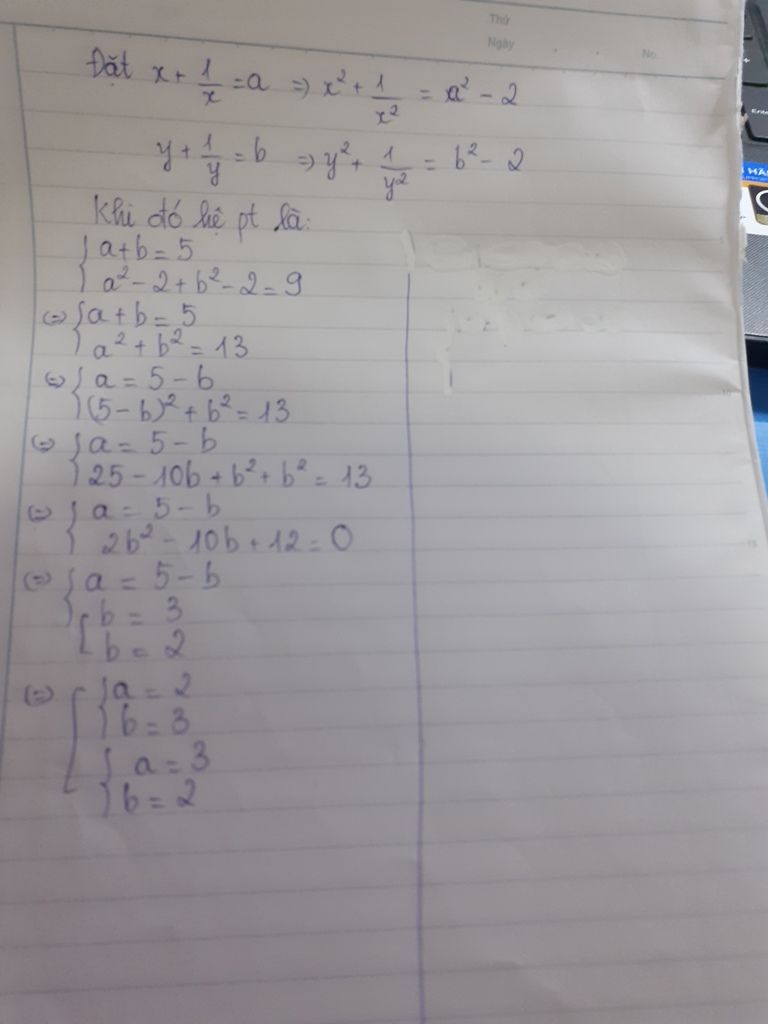 Thứ
Ngày . . No.
Đặt x + 1/x = a => x² + 1/x² = a² - 2
y + 1/y = b => y² + 1/y² = b² - 2
Khi đó hệ pt là:
{ a + b = 5
a² - 2 + b² - 2 = 9
<=> { a + b = 5
a² + b² = 13
<=> { a = 5 - b
(5 - b)² + b² = 13
<=> { a = 5 - b
25 - 10b + b² + b² = 13
<=> { a = 5 - b
2b² - 10b + 12 = 0
<=> { a = 5 - b
[ b = 3
b = 2
<=> [ { a = 2
b = 3
{ a = 3
b = 2